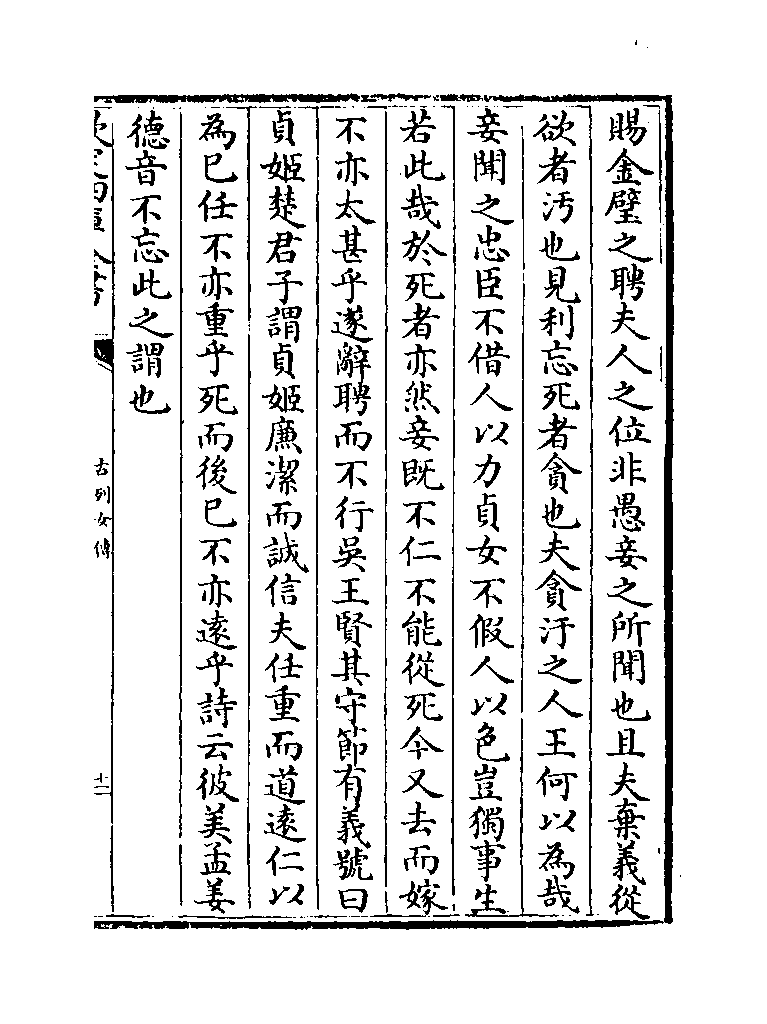 賜金璧之聘夫人之位非愚妾之所聞也且夫棄義從
欲者汚也見利忘死者貪也夫貪汙之人王何以為哉
妾聞之忠臣不借人以力貞女不假人以色豈獨事生
若此哉於死者亦然妾既不仁不能從死今又去而嫁
不亦太甚乎遂辭聘而不行吳王賢其守節有義號曰
貞姬楚君子謂貞姬廉潔而誠信夫任重而道遠仁以
為已任不亦重乎死而後已不亦遠乎詩云彼美孟姜
德音不忘此之謂也
欽定四庫全書
古列女傳
十二